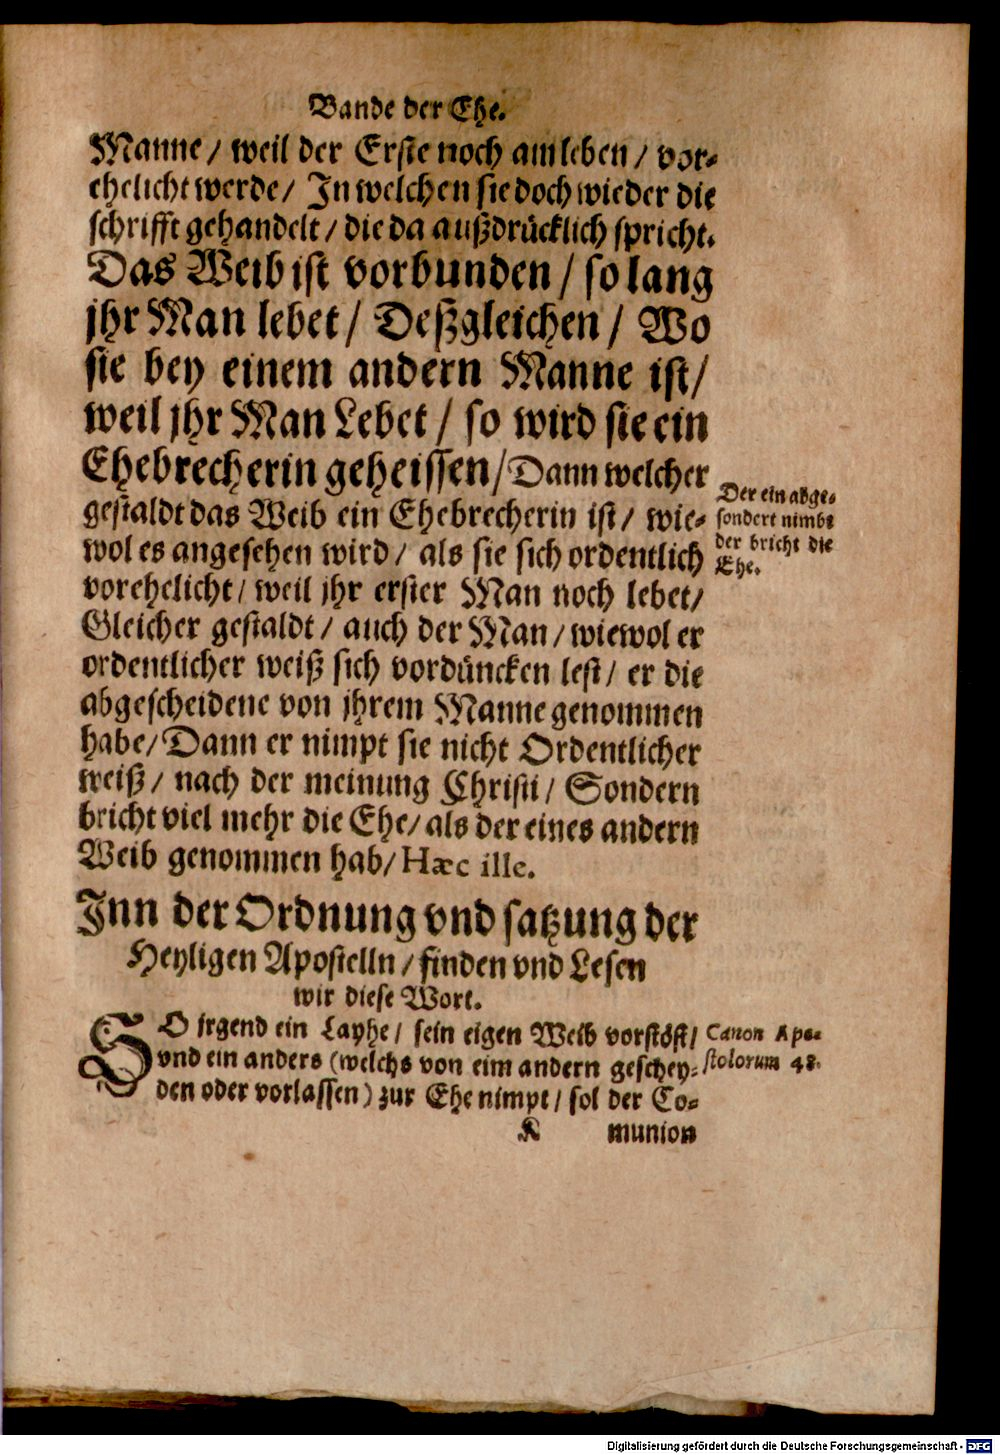 Bande der Ehe.
Manne / weil der Erste noch am leben / vor-
ehelicht werde / In welchen sie doch wieder die
schrifft gehandelt / die da außdrücklich spricht.
Das Weib ist vorbunden / so lang
jhr Man lebet / Deßgleichen / Wo
sie bey einem andern Manne ist /
weil jhr Man Lebet / so wird sie ein
Ehebrecherin geheissen / Dann welcher
gestaldt das Weib ein Ehebrecherin ist / wie-
wol es angesehen wird / als sie sich ordentlich
vorehelicht / weil jhr erster Man noch lebet /
Gleicher gestaldt / auch der Man / wiewol er
ordentlicher weiß sich vordüncken lest / er die
abgescheidene von jhrem Manne genommen
habe / Dann er nimpt sie nicht Ordentlicher
weiß / nach der meinung Christi / Sondern
bricht viel mehr die Ehe / als der eines andern
Weib genommen hab / Hæc ille.
Der ein abge-
sondert nimbt
der bricht die
Ehe.
Inn der Ordnung vnd satzung der
Heyligen Apostelln / finden vnd Lesen
wir diese Wort.
SO irgend ein Layhe / sein eigen Weib vorstöst /
vnd ein anders (welchs von eim andern geschey-
den oder vorlassen) zur Ehe nimpt / sol der Co-
Canon Apo-
stolorum 48.
K munion
Digitalisierung gefördert durch die Deutsche Forschungsgemeinschaft - DFG